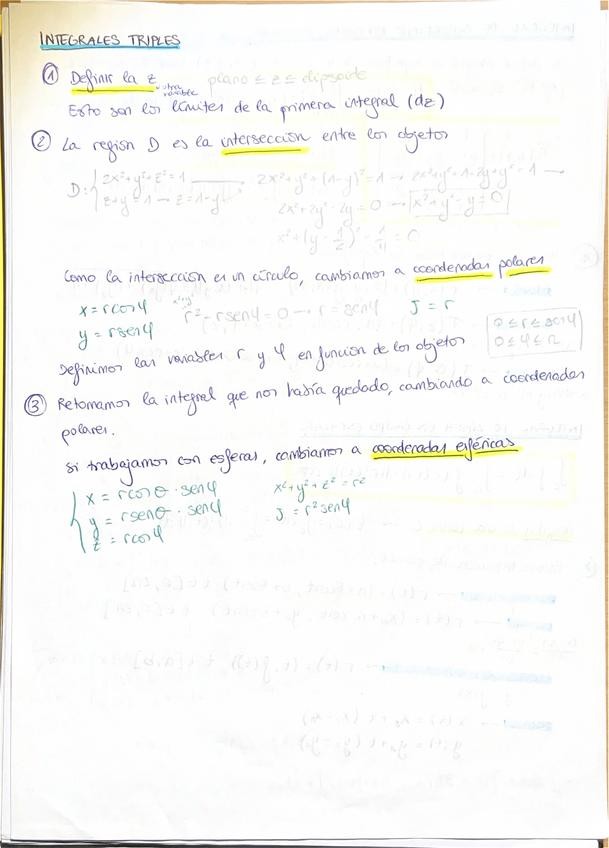 INTEGRALES TRIPLES
① Definir la z plano ≤ z ≤ elipsoide
u otra variable
Esto son los límites de la primera integral (dz)
② La región D es la intersección entre los objetos
D: { 2x²+y²+z²=1 → 2x²+y²+(1-y)²=1 → 2x²+y²+1-2y+y²=1 →
z+y=1 → z=1-y 2x²+2y²-2y=0 → x²+y²-y=0
x²+(y-1/2)²-1/4=0
Como la intersección es un círculo, cambiamos a coordenadas polares
x²+y²
x=rcosφ r²-rsenφ=0 → r=senφ J=r
y=rsenφ 0≤r≤senφ
Definimos las variables r y φ en función de los objetos 0≤φ≤π
③ Retomamos la integral que nos había quedado, cambiando a coordenadas
polares.
Si trabajamos con esferas, cambiamos a coordenadas esféricas
{ x = rcosθ·senφ x²+y²+z²=r²
y = rsenθ·senφ J=r²senφ
z = rcosφ